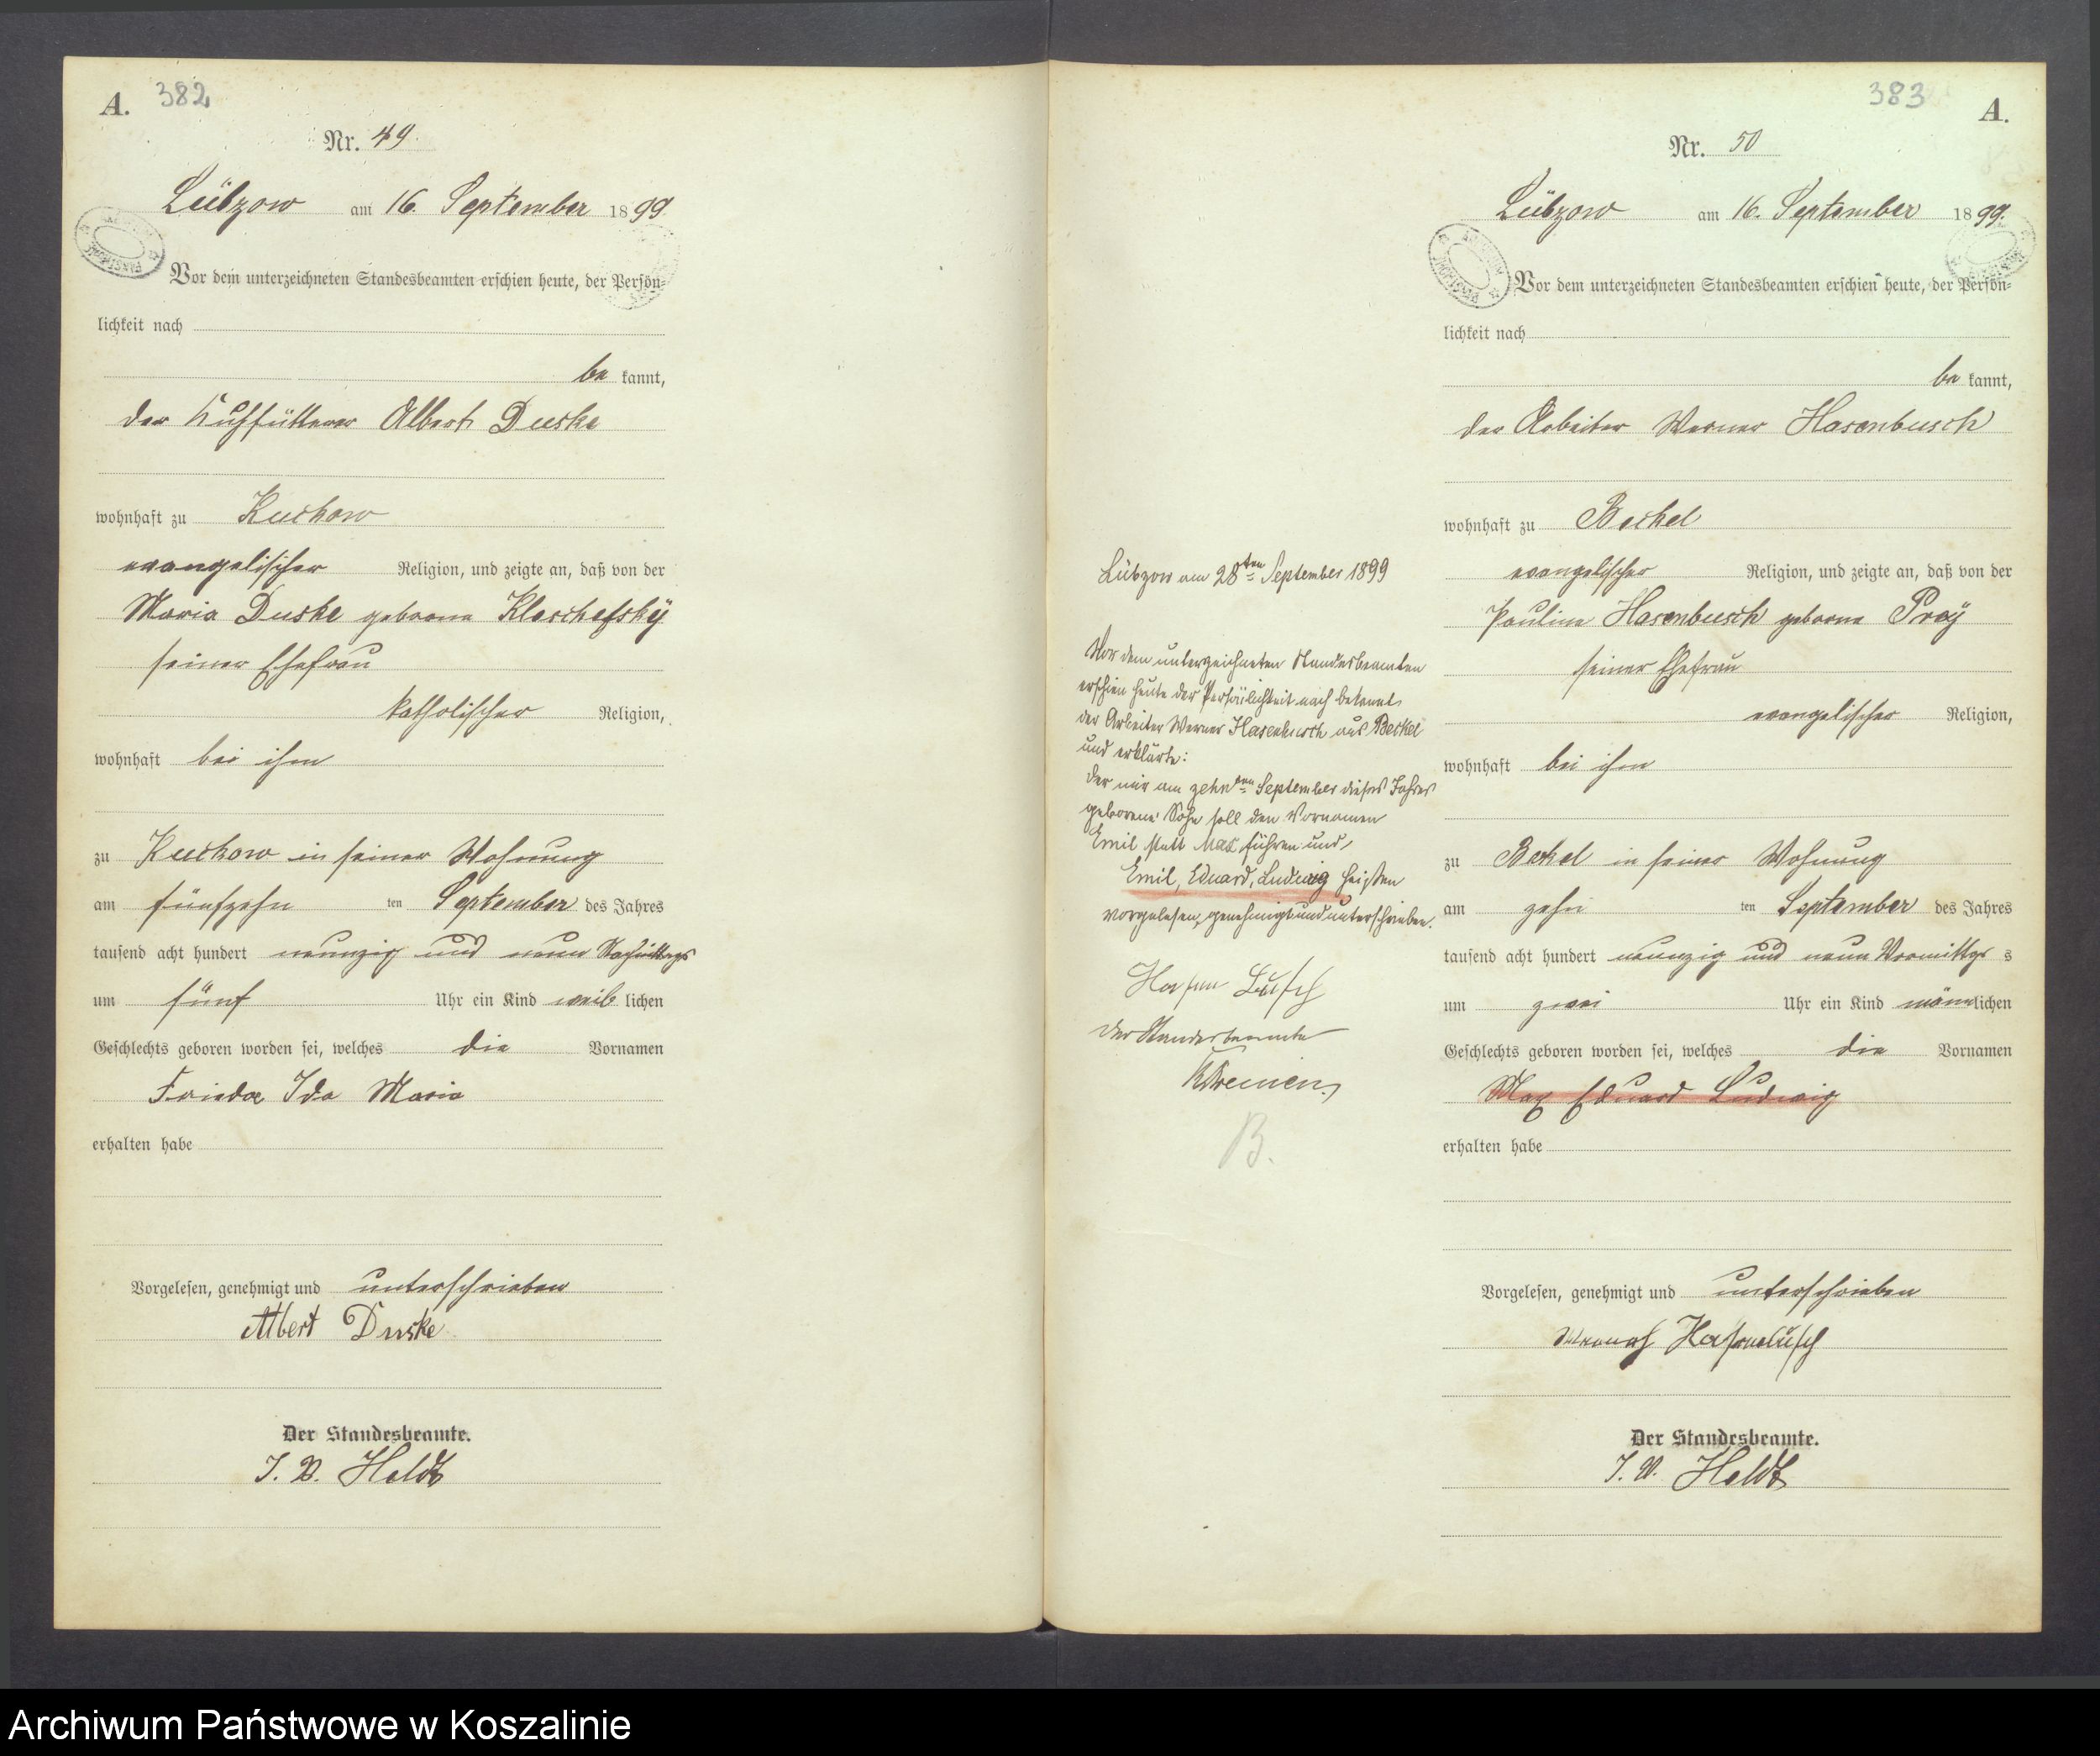 A.
382
Nr. 49.
Lübzow am 16. September 1899.
Vor dem unterzeichneten Standesbeamten erschien heute, der Persön-
lichkeit nach
be kannt,
der Kuhfütterer Albert Duske
wohnhaft zu Kuckow
evangelischer Religion, und zeigte an, daß von der
Maria Duske geborene Kleschefsky
seiner Ehefrau
katholischer Religion,
wohnhaft bei ihm
zu Kuckow in seiner Wohnung
am fünfzehn ten September des Jahres
tausend acht hundert neunzig und neun Nachmittags
um fünf Uhr ein Kind weib lichen
Geschlechts geboren worden sei, welches die Vornamen
Frieda Ida Maria
erhalten habe
Vorgelesen, genehmigt und unterschrieben
Albert Duske
Der Standesbeamte.
I. V. Heldt
383
A.
Nr. 50
Lübzow am 16. September 1899.
Vor dem unterzeichneten Standesbeamten erschien heute, der Persön-
lichkeit nach
be kannt,
der Arbeiter Werner Hasenbusch
wohnhaft zu Beckel
evangelischer Religion, und zeigte an, daß von der
Pauline Hasenbusch geborne Proy
seiner Ehefrau
evangelischer Religion,
wohnhaft bei ihm
zu Beckel in seiner Wohnung
am zehn ten September des Jahres
tausend acht hundert neunzig und neun Vormittgs s
um zwei Uhr ein Kind männlichen
Geschlechts geboren worden sei, welches die Vornamen
Max Eduard Ludwig
erhalten habe
Vorgelesen, genehmigt und unterschrieben
Hasenbusch
Der Standesbeamte.
I. V. Heldt
Lübzow am 28ten September 1899
Vor dem unterzeichneten Standesbeamten
erschien heute der Persönlichkeit nach bekannt
der Arbeiter Werner Hasenbusch aus Beckel
und erklärte:
Der mir am zehnten September dieses Jahres
geborene Sohn soll den Vornamen
Emil statt Max führen und
Emil, Eduard, Ludwig heißen
vorgelesen, genehmigt und unterschrieben.
Hasen Busch
Der Standesbeamte
B.
Archiwum Państwowe w Koszalinie